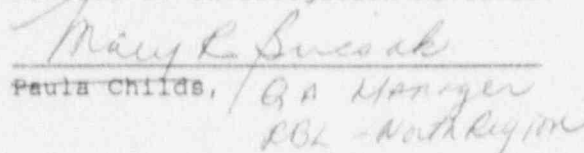 Mary R Bucsak
Paula Childs, / QA Manager
RBL - North Region